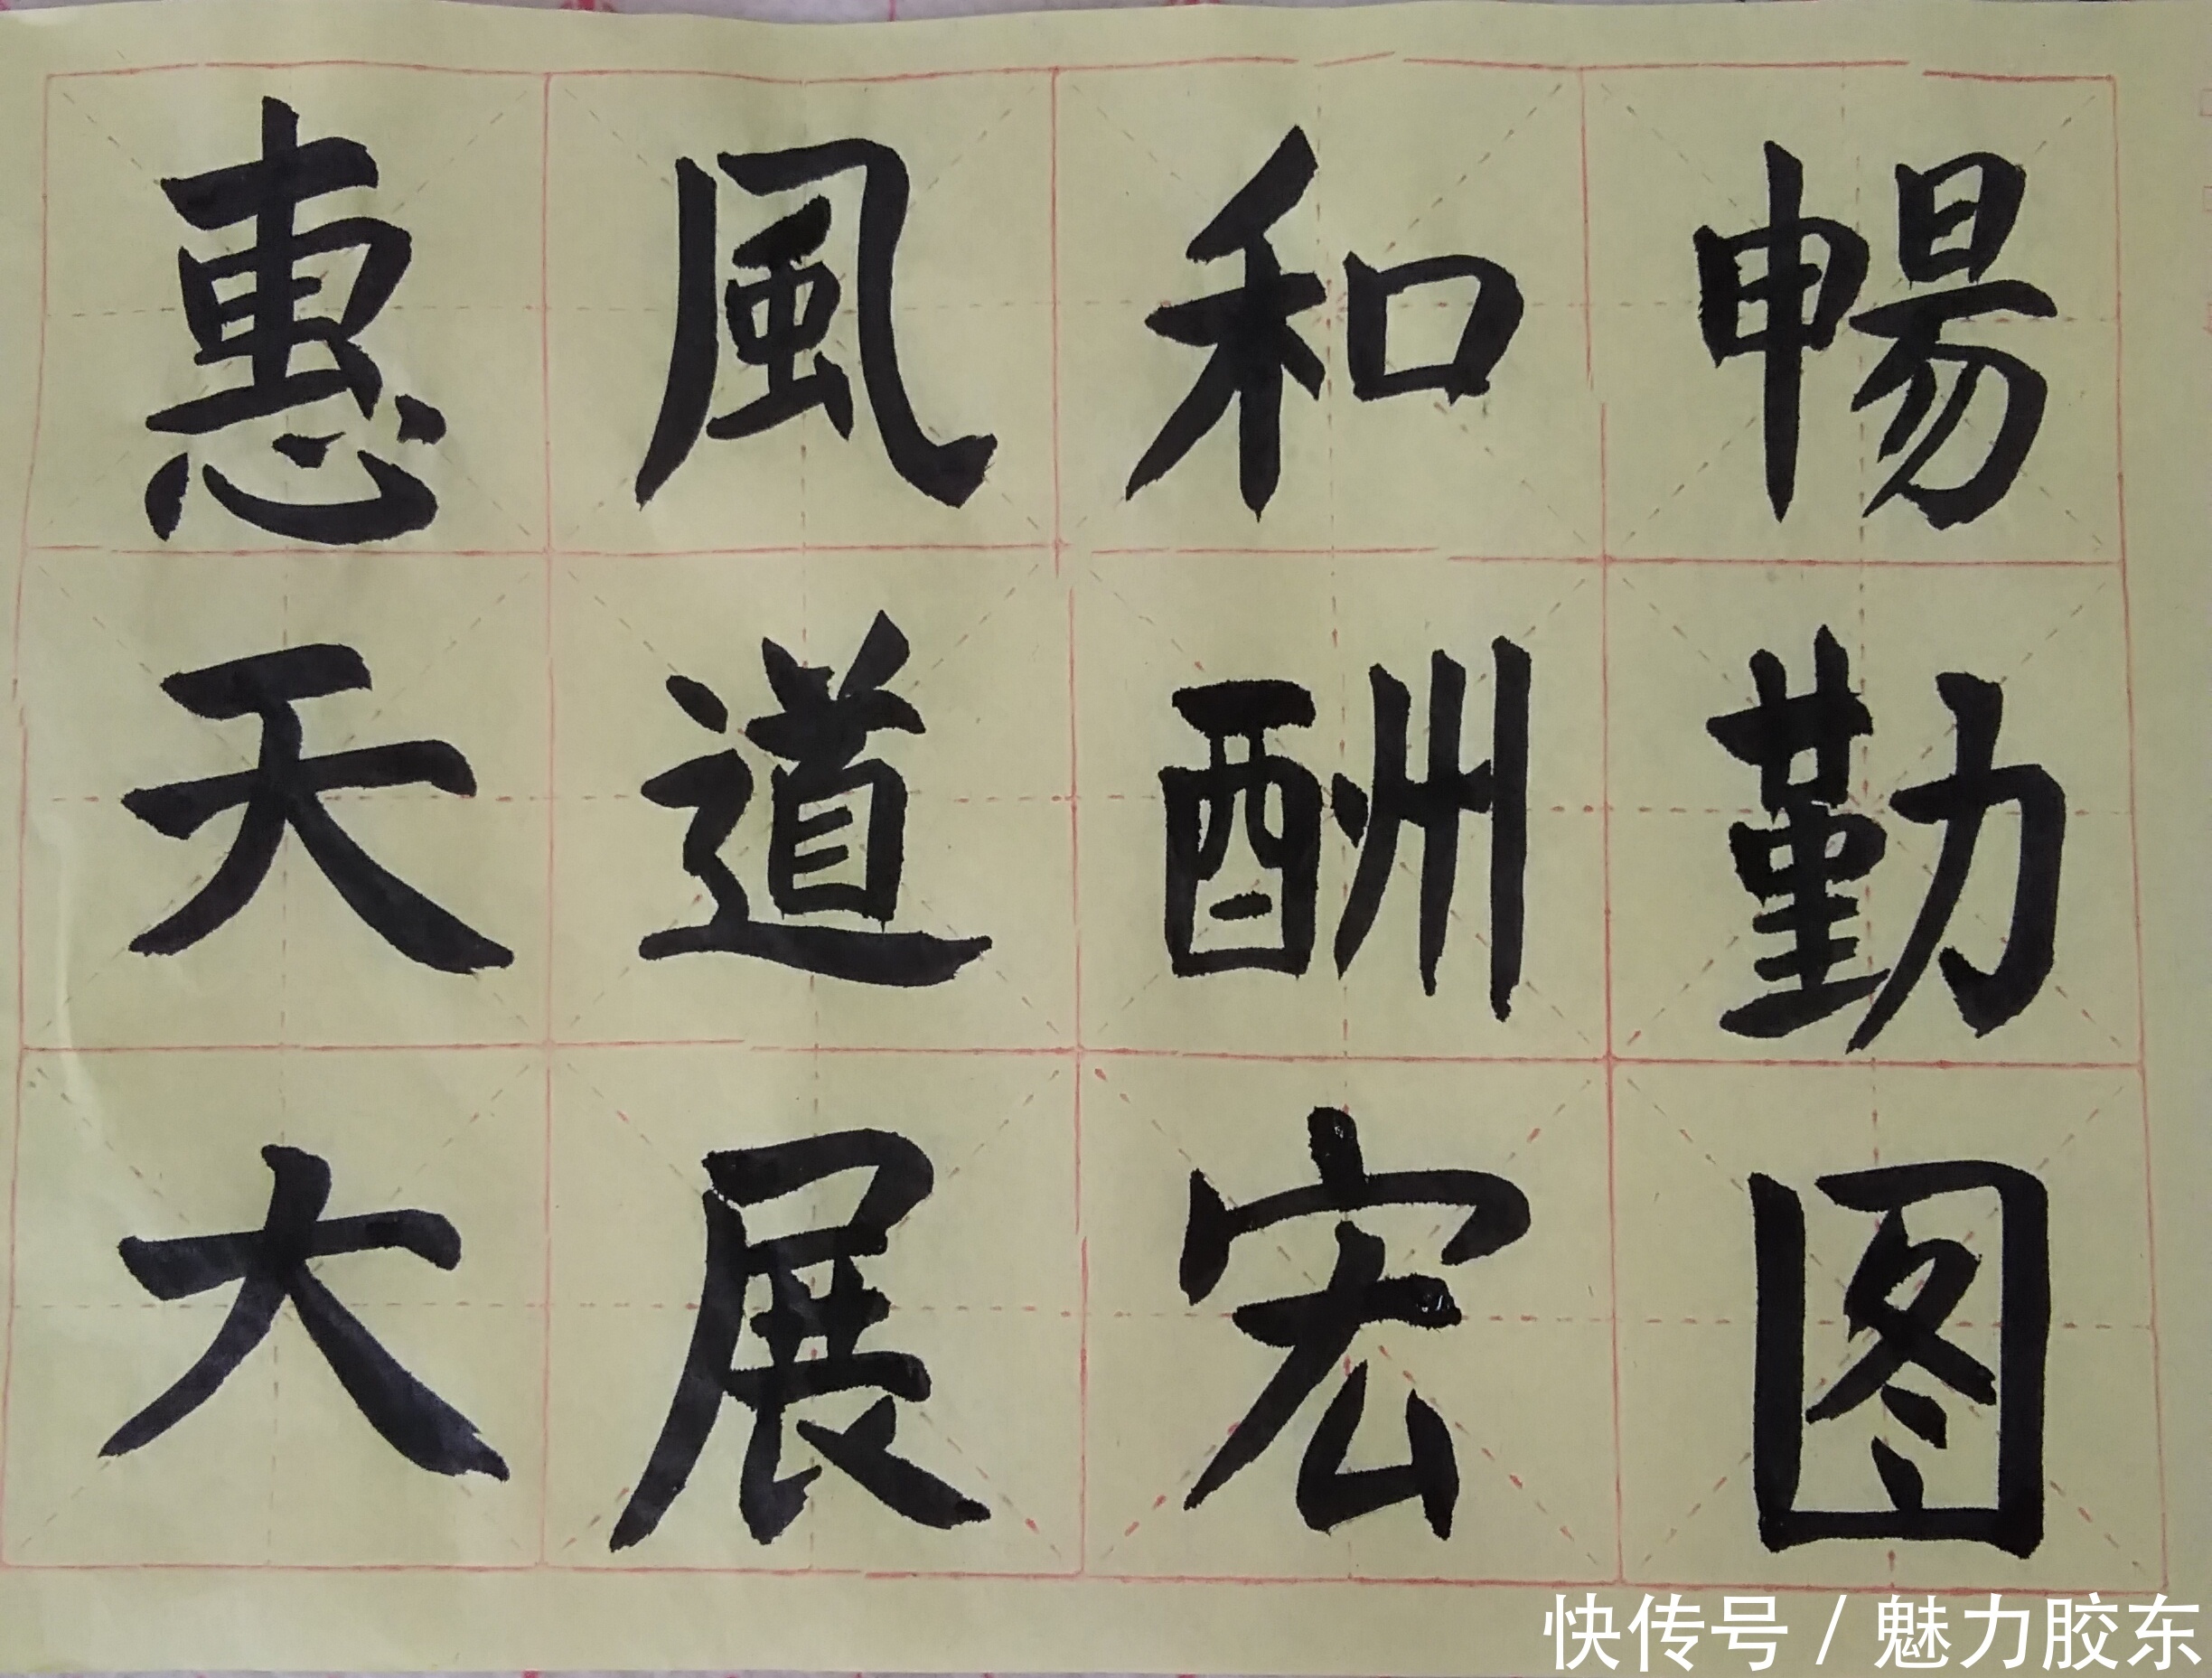 惠風和暢
天道酬勤
大展宏图
快传号 / 魅力胶东